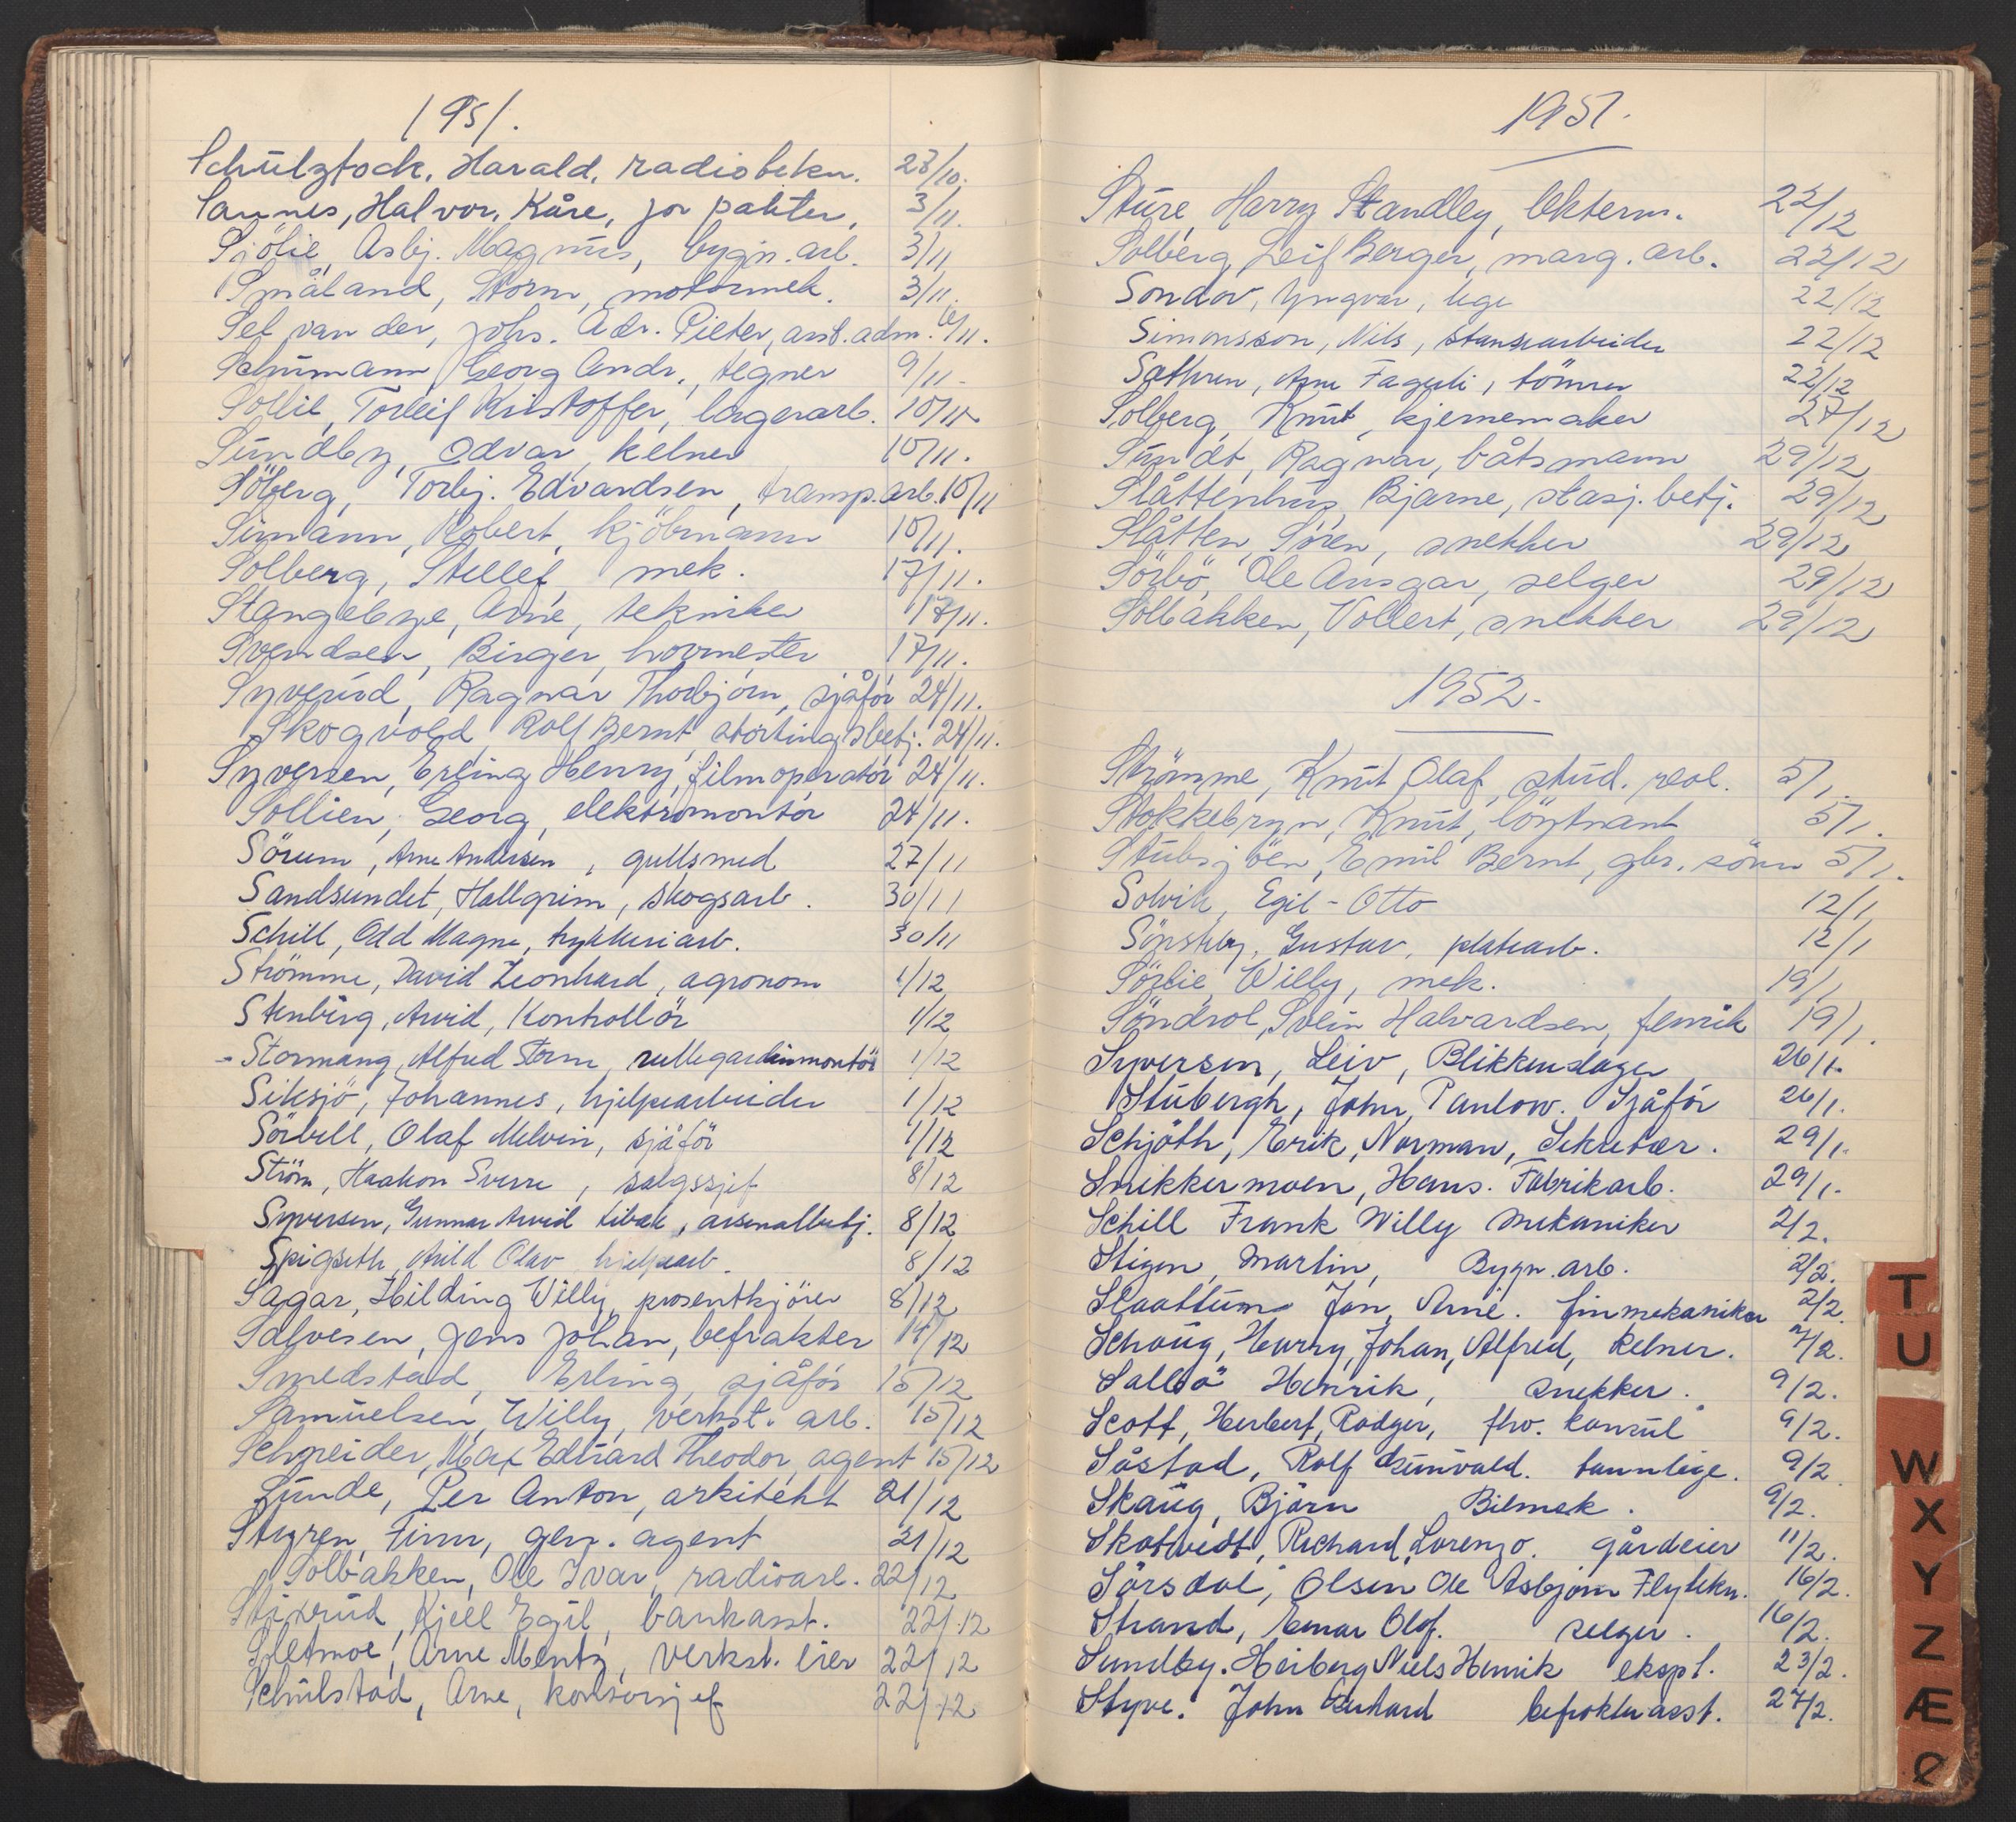 1951.
Schulztock, Harald, radiotekn. 28/10.
Sannes, Halvor, Kåre, for pakter, 3/11.
Sjölie, Asbj. Magnus, bygn. arb. 3/11
Småland, Storm, motormek. 3/11.
Sel van der, Johs. Adr. Pieter, ass. adm. 6/11.
Schumann, Georg Andr., tegner 9/11.
Sollie, Torleif Kristoffer, lagerarb. 10/11
Sundby, Odvar, kelner 10/11.
Söberg, Torbj. Edvardsen, transp. arb. 10/11
Simann, Robert, kjöbmann 10/11.
Solberg, Stellef, mek. 17/11.
Stangebye, Arne, tekniker 17/11.
Svendsen, Birger, hovmester 17/11.
Syverud, Ragnar Thorbjörn, sjåför 24/11.
Skogvold, Rolf Bernt, stortingsbetj. 24/11.
Syversen, Erling Henry, filmoperatör 24/11.
Sollien, Georg, elektromontör 24/11.
Sörum, Arne Andersen, gullsmed 27/11
Sandsundet, Hallgrim, skogsarb. 30/11
Schill, Odd Magne, trykkeriarb. 30/11
Strömme, David Leonhard, agronom 1/12
Stenberg, Arvid, Kontrollör 1/12
- Stormang, Alfred Storm, rullegardinmontör 1/12
Siksjö, Johannes, hjelpearbeider 1/12
Sörbell, Olaf Melvin, sjåför 1/12
Ström, Haakon Sverre, salgssjef 8/12
Syversen, Gunnar Arvid Libak, arsenalbetj. 8/12
Spigseth, Arild Olav hjelpearb. 8/12
Sagar, Hilding Willy, prosentkjörer 8/12
Salvesen, Jens Johan, befrakter 14/12
Smedstad, Erling, sjåför 15/12
Samuelsen, Willy, verkst. arb. 15/12
Schneider, Max Eduard Theodor, agent 15/12
Sunde, Per Anton, arkitekt 21/12
Styren, Finn, gen. agent 21/12
Solbakken, Ole Ivar, radioarb. 22/12
Stixrud, Kjell Egil, bankasst. 22/12
Sletmoe, Arne Mentz, verkst. eier 22/12
Schulstad, Arne, kontorsjef 22/12
1951.
Sture, Harry Standley, lekterm. 22/12
Solberg, Leif Berger, marg. arb. 22/12
Sondov, Yngvar, lege 22/12
Simonsson, Nils, stansearbeider 22/12
Sathren, Arne Fagerli, tömrer 22/12
Solberg, Knut, kjernemaker 27/12
Sundt, Ragnar, båtsmann 29/12
Slåttenhus, Bjarne, stasj. betj. 29/12
Slåtten, Sören, snekker 29/12
Sörbö, Ole Ansgar, selger 29/12
Solbakken, Vollert, snekker 29/12
1952.
Strömme, Knut Olaf, stud. real. 5/1.
Stokkebryn, Knut, löytnant 5/1.
Stubsjöen, Emil Bernt, gbr. sönn 5/1.
Solvik, Egil-Otto 12/1
Sönsteby, Gustav, platearb. 12/1
Sörlie, Willy, mek. 19/1
Söndrol, Svein Halvardsen, fenrik 19/1.
Syversen, Leiv, Blikkenslager 26/1.
Stubergh, John, Pantow. Sjåför 26/1.
Schjöth, Erik, Norman, Sekretær. 29/1.
Snikkermoen, Hans. Fabrikarb. 29/1.
Schill Frank Willy Mekaniker 2/2.
Stigen, Martin, Bygn. arb. 2/2.
Slaattum Jan, Arne. finmekaniker 2/2.
Schoug, Harry, Johan, Alfred, Kelner. 7/2.
Sallsö Henrik, snekker. 9/2.
Scott, Herbert, Rodger, fhv. konsul 9/2.
Såstad, Rolf Gunvald. tannlege. 9/2
Skaug, Björn Bilmek. 9/2.
Skotvedt, Richard, Lorenzo. gårdeier 11/2.
Sörsdal, Olsen Ole Asbjörn Flytekn. 16/2.
Strand, Einar Olaf. selger. 16/2.
Sundby. Heiberg Niels Henrik ekspl. 23/2.
Styve. John Gerhard befrakterasst. 27/2.
T
U
W
X
Y
Z
Æ
Ø